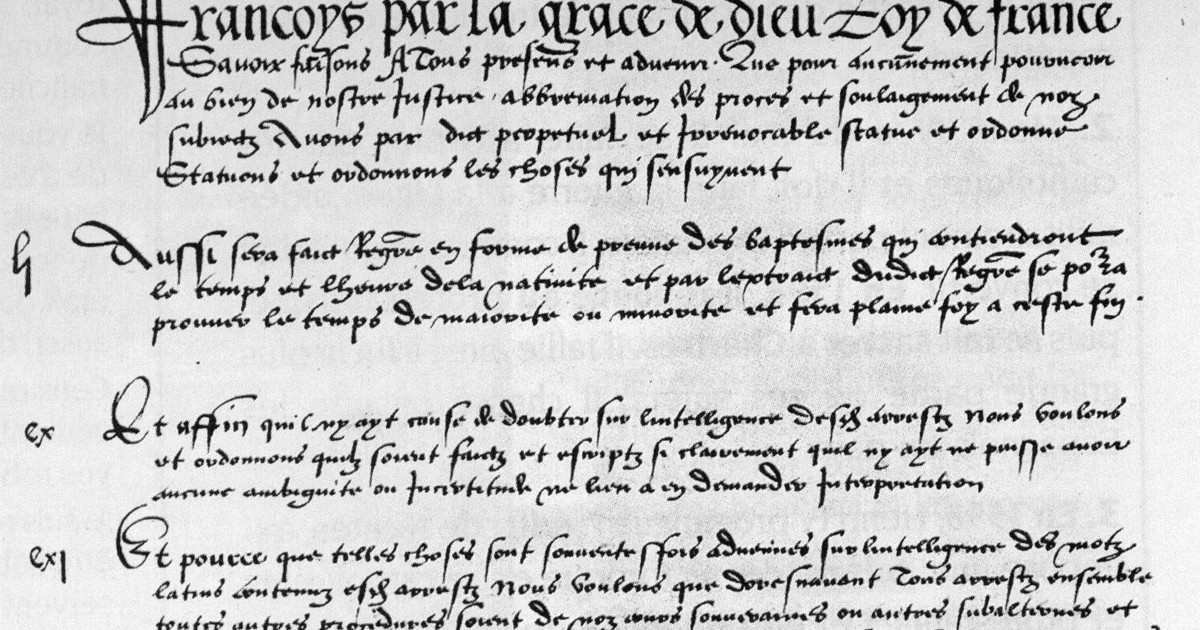 Francoys par la grace de dieu Roy de france
Savoir faisons A Tous presens et advenir. Que pour aucunement pourveoir
au bien de nostre Justice, abbreviation des proces et soulaigement de noz
subiectz Avons par edict perpetuel et Irrevocable statue et ordonne
Statuons et ordonnons les choses qui sensuyvent
lj Aussi sera faict Regre en forme de preuve des baptesmes qui contiendront
le temps et lheure dela nativite et par lextraict dudict Regre se porra
prouver le temps de maiorite ou minorite et fera plaine foy a ceste fin.
cx Et affin quil ny ayt cause de doubter sur lintelligence desdictz arrestz Nous voulons
et ordonnons quilz soient faictz et escriptz si clairement quil ny ayt ne puisse avoir
aucune ambiguite ou Incertitude ne lieu a en demander Interpretation
cxj Et pource que telles choses sont souventesfois advenues sur lintelligence des motz
latins contenuz esdictz arrestz Nous voulons que doresnavant Tous arrestz ensemble
toutes autres procedures soient de noz cours souveraines ou autres subalternes et